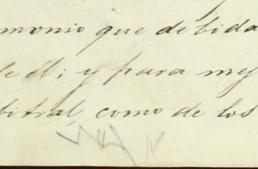 monio que debida
de él; y para mej
bitral, como de los